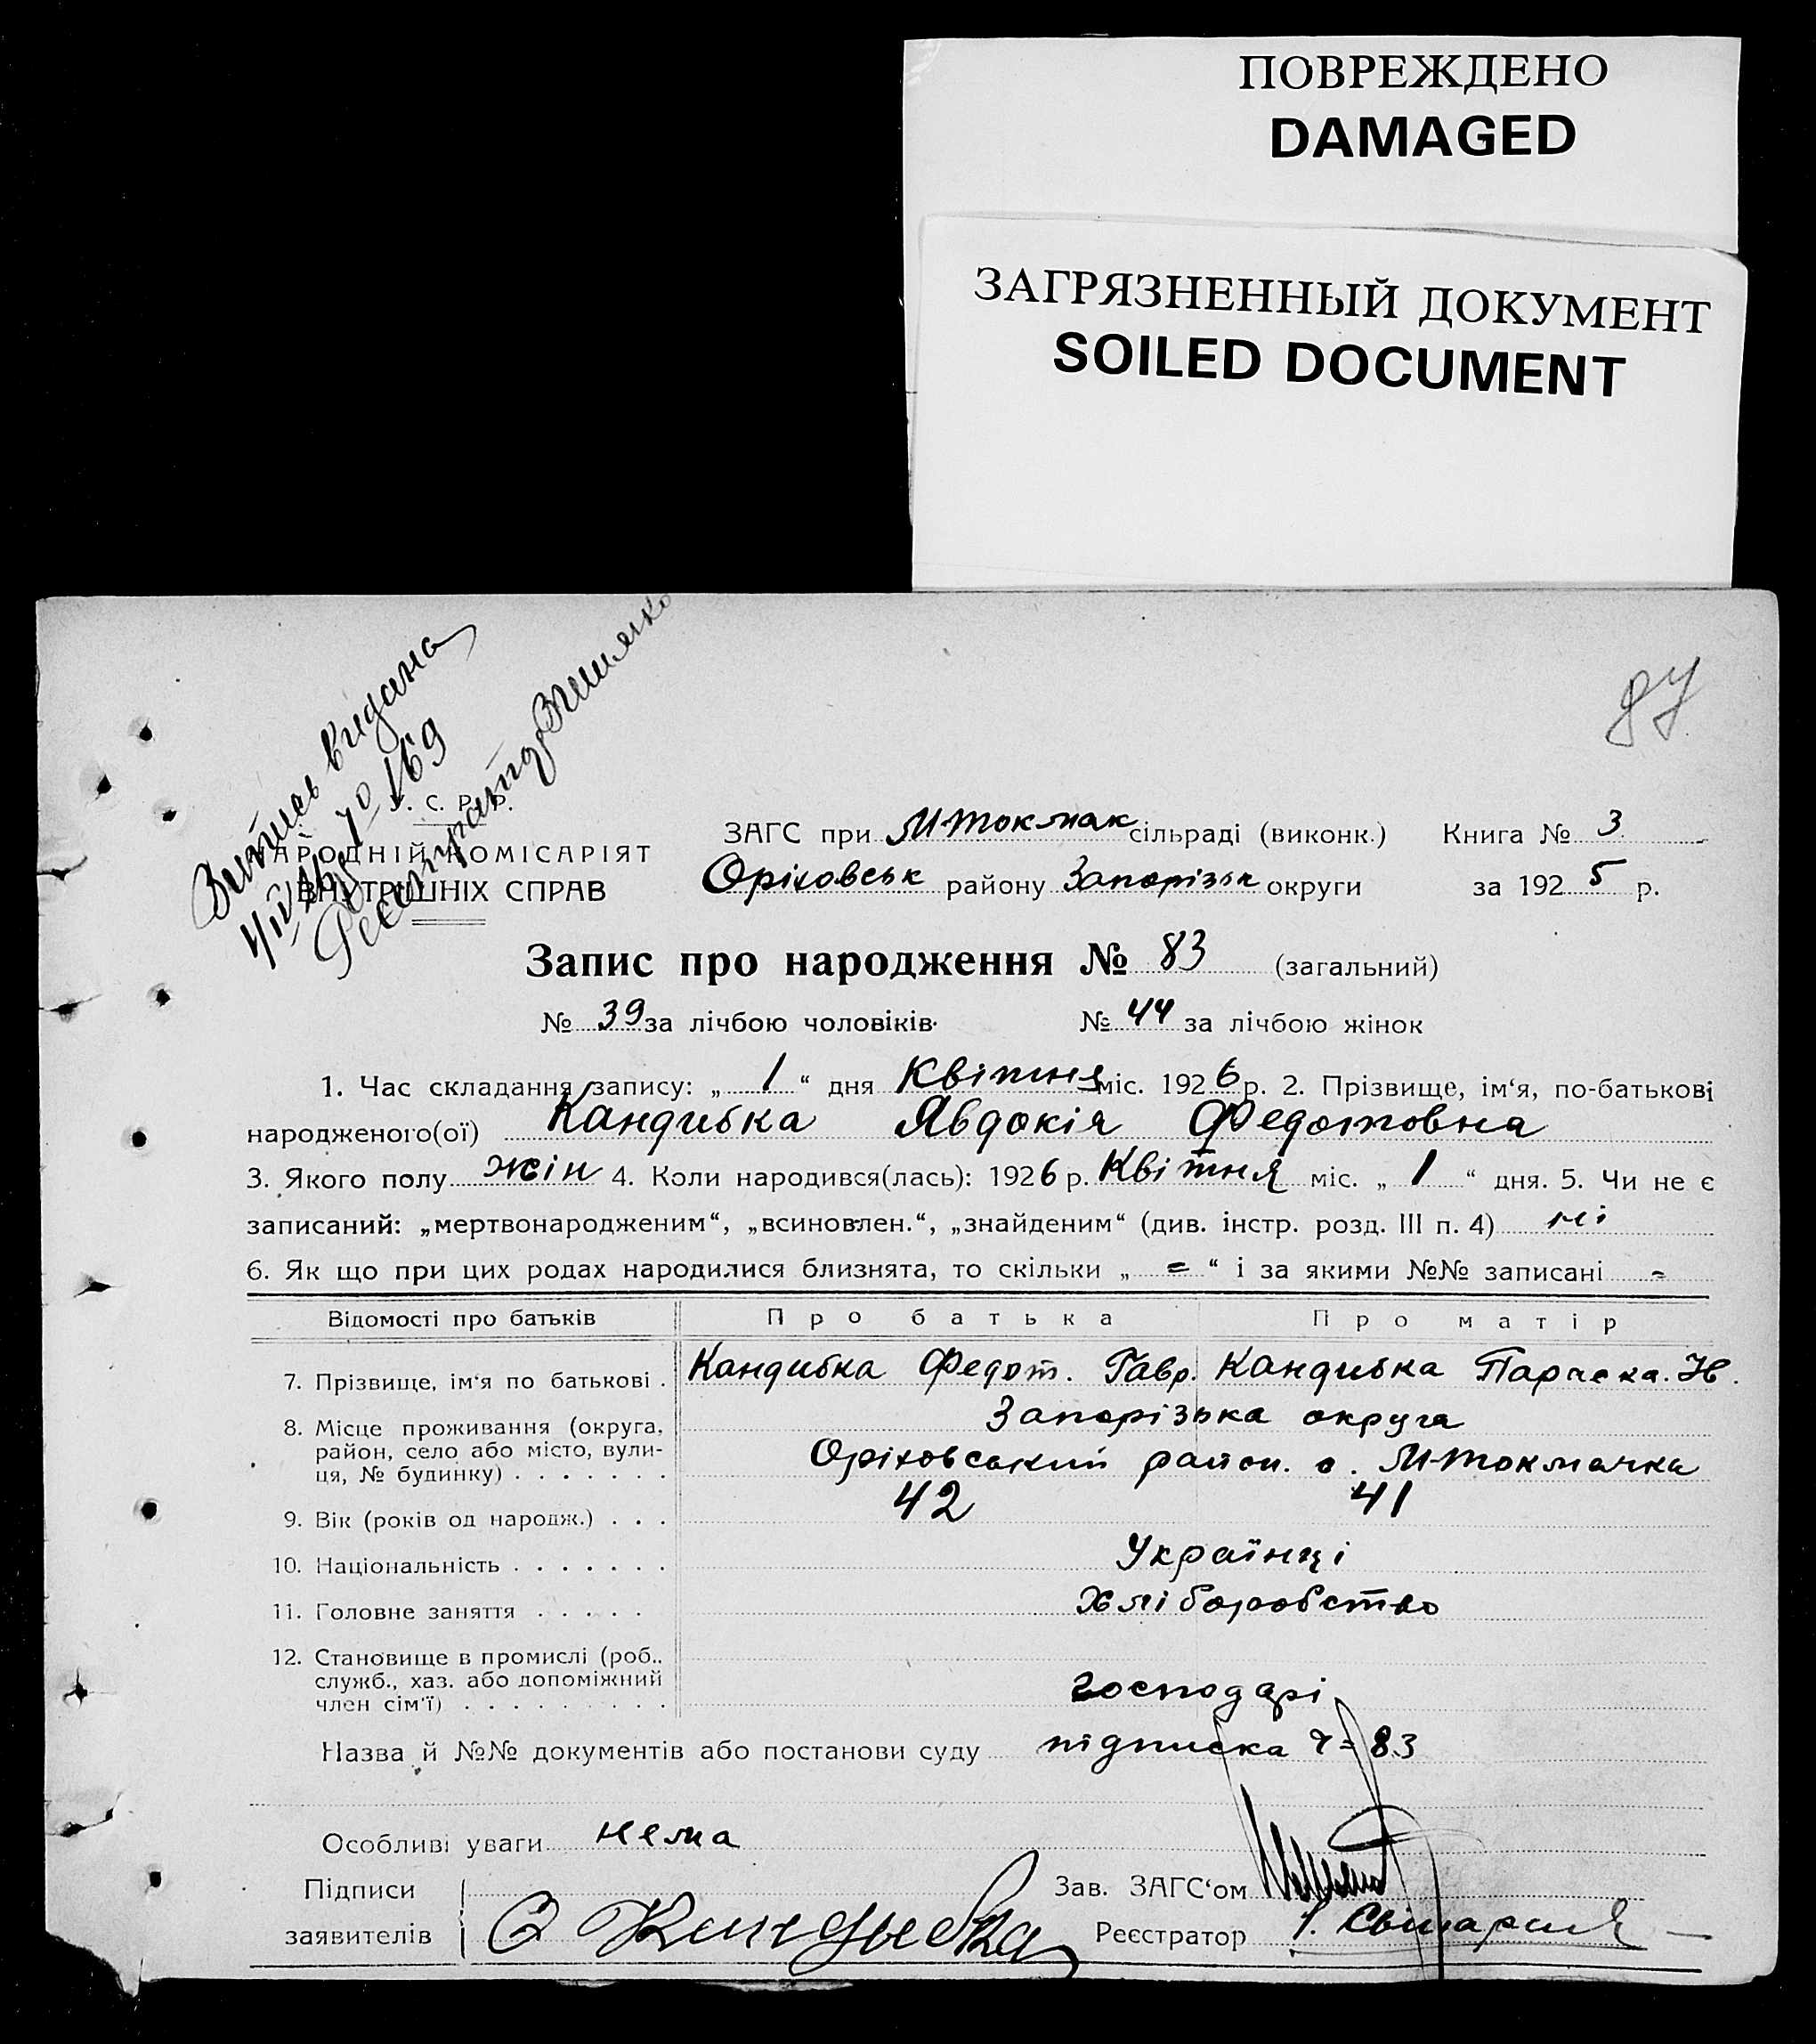 ПОВРЕЖДЕНО
DAMAGED
ЗАГРЯЗНЕННЫЙ ДОКУМЕНТ
SOILED DOCUMENT
87
видана
169
У. С. Р. Р.
НАРОДНІЙ КОМІСАРІЯТ
ВНУТРІШНІХ СПРАВ
ЗАГС при М-Токмак сільраді (виконк.) Книга № 3
Оріховськ району Запорізьк округи за 1925 р.
Запис про народження № 83 (загальний)
№ 39 за лічбою чоловіків. № 44 за лічбою жінок
1. Час складання запису: „ 1 “ дня Квітня міс. 1926 р. 2. Прізвище, ім‘я, по-батькові
народженого(ої) Кандибка Явдокія Федотовна
3. Якого полу жін 4. Коли народився(лась): 1926 р. Квітня міс. „ 1 “ дня. 5. Чи не є
записаний: „мертвонародженим“, „всиновлен.“, „знайденим“ (див. інстр. розд. III п. 4) ні
6. Як що при цих родах народилися близнята, то скільки „ = “ і за якими №№ записані =
Відомості про батьків Про батька Про матір
7. Прізвище, ім‘я по батькові . Кандибка Федот. Гавр. Кандибка Параска. Н.
8. Місце проживання (округа, Запорізька округа
район, село або місто, вули-
ця, № будинку) . . . . . . . Оріховський район. с. М-Токмачка
9. Вік (років од народж.) . . . 42 41
10. Національність . . . . . . . Українці
11. Головне заняття . . . . . Хліборобство
12. Становище в промислі (роб.,
служб., хаз. або допоміжний
член сім‘ї) . . . . . . . . . господарі
Назва й №№ документів або постанови суду підписка Ч= 83
Особливі уваги нема
Підписи Зав. ЗАГС‘ом
заявителів Кандыбка Реєстратор